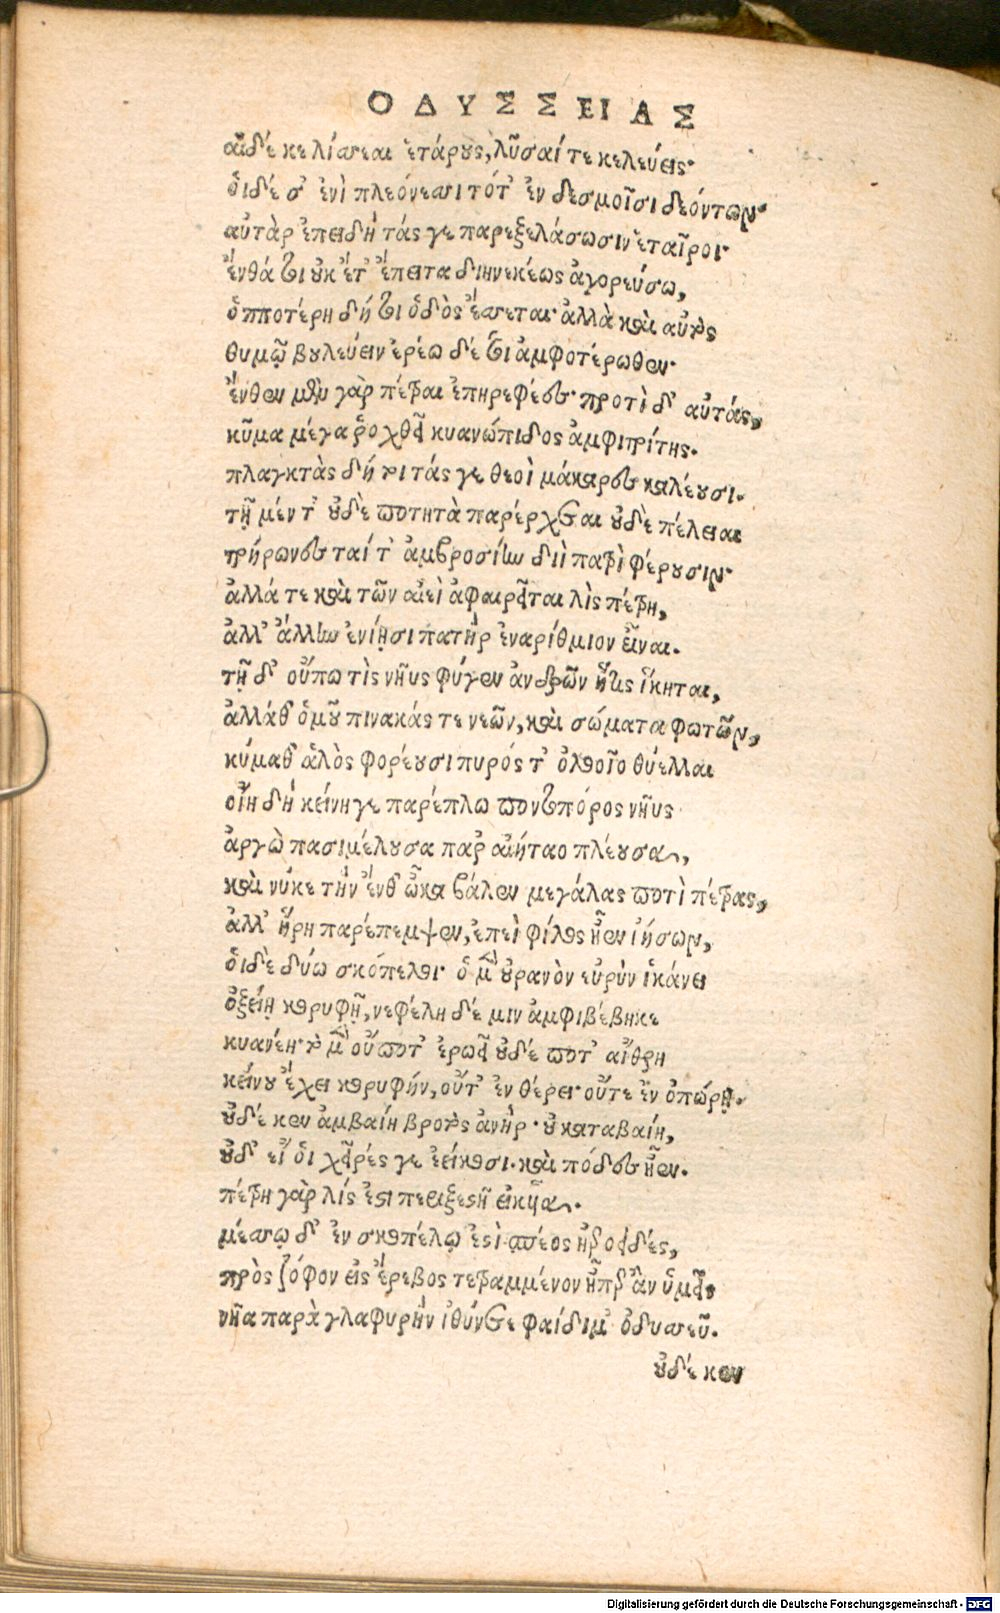 ΟΔΥΣΣΕΙΑΣ
αἰδέ κε λίσσεαι ἑτάρους, λῦσαί τε κελεύεις·
ὁιδέ σ' ἐνὶ πλεόνεσσι τότ' ἐν δεσμοῖσι δεόντων·
αὐτὰρ ἐπειδὴ τάς γε παρεξελάσωσιν ἑταῖροι·
ἔνθά τοι οὐκ ἔτ' ἔπειτα διηνεκέως ἀγορεύσω,
ὁπποτέρη δή τοι ὁδὸς ἔσσεται· ἀλλὰ καὶ αὐτὸς
θυμῷ βουλεύειν ἐρέω δέ τοι ἀμφοτέρωθεν·
ἔνθεν μὲν γὰρ πέτραι ἐπηρεφέες· προτὶ δ' αὐτάς,
κῦμα μέγα ῥοχθεῖ κυανώπιδος ἀμφιτρίτης.
πλαγκτὰς δή τοι τάς γε θεοὶ μάκαρες καλέουσι.
τῇ μέν τ' οὐδὲ ποτητὰ παρέρχεται οὐδὲ πέλειαι
τρήρωνες ταί τ' ἀμβροσίην διὶ πατρὶ φέρουσιν·
ἀλλά τε καὶ τῶν αἰεὶ ἀφαιρεῖται λὶς πέτρη,
ἀλλ' ἄλλην ἐνίησι πατὴρ ἐναρίθμιον εἶναι.
τῇ δ' οὔπω τὶς νηῦς φύγεν ἀνδρῶν ἥτις ἵκηται,
ἀλλάθ' ὁμοῦ πινακάς τε νεῶν, καὶ σώματα φωτῶν,
κύμαθ' ἁλὸς φορέουσι πυρός τ' ὀλοοῖο θύελλαι
οἴη δὴ κείνη γε παρέπλω ποντοπόρος νηῦς
ἀργὼ πασιμέλουσα παρ' αἰήταο πλέουσα,
καὶ νύκε τὴν ἔνθ' ὦκα βάλεν μεγάλας ποτὶ πέτρας,
ἀλλ' ἥρη παρέπεμψεν, ἐπεὶ φίλος ἦεν ἰήσων,
ὁιδὲ δύω σκόπελοι· ὁ μὲν οὐρανὸν εὐρὺν ἱκάνει
ὀξείῃ κορυφῇ, νεφέλη δέ μιν ἀμφιβέβηκε
κυανέη· τὸ μὲν οὔποτ' ἐρωεῖ οὐδέ ποτ' αἴθρη
κείνου ἔχει κορυφήν, οὔτ' ἐν θέρει· οὔτε ἐν ὀπώρῃ.
οὐδέ κεν ἀμβαίη βροτὸς ἀνὴρ· οὐ καταβαίη,
οὐδ' εἴ ὁι χεῖρές γε ἐείκοσι. καὶ πόδες ἦεν.
πέτρη γὰρ λίς ἐστι περιξεστῇ εἰκυῖα.
μέσσῳ δ' ἐν σκοπέλῳ ἐστὶ σπέος ἠεροειδές,
πρὸς ζόφον εἰς ἔρεβος τετραμμένον ἧπερ ἂν ὑμεῖς
νῆα παρὰ γλαφυρὴν ἰθύνετε φαίδιμ' ὀδυσσεῦ.
οὐδέ κεν
Digitalisierung gefördert durch die Deutsche Forschungsgemeinschaft - DFG